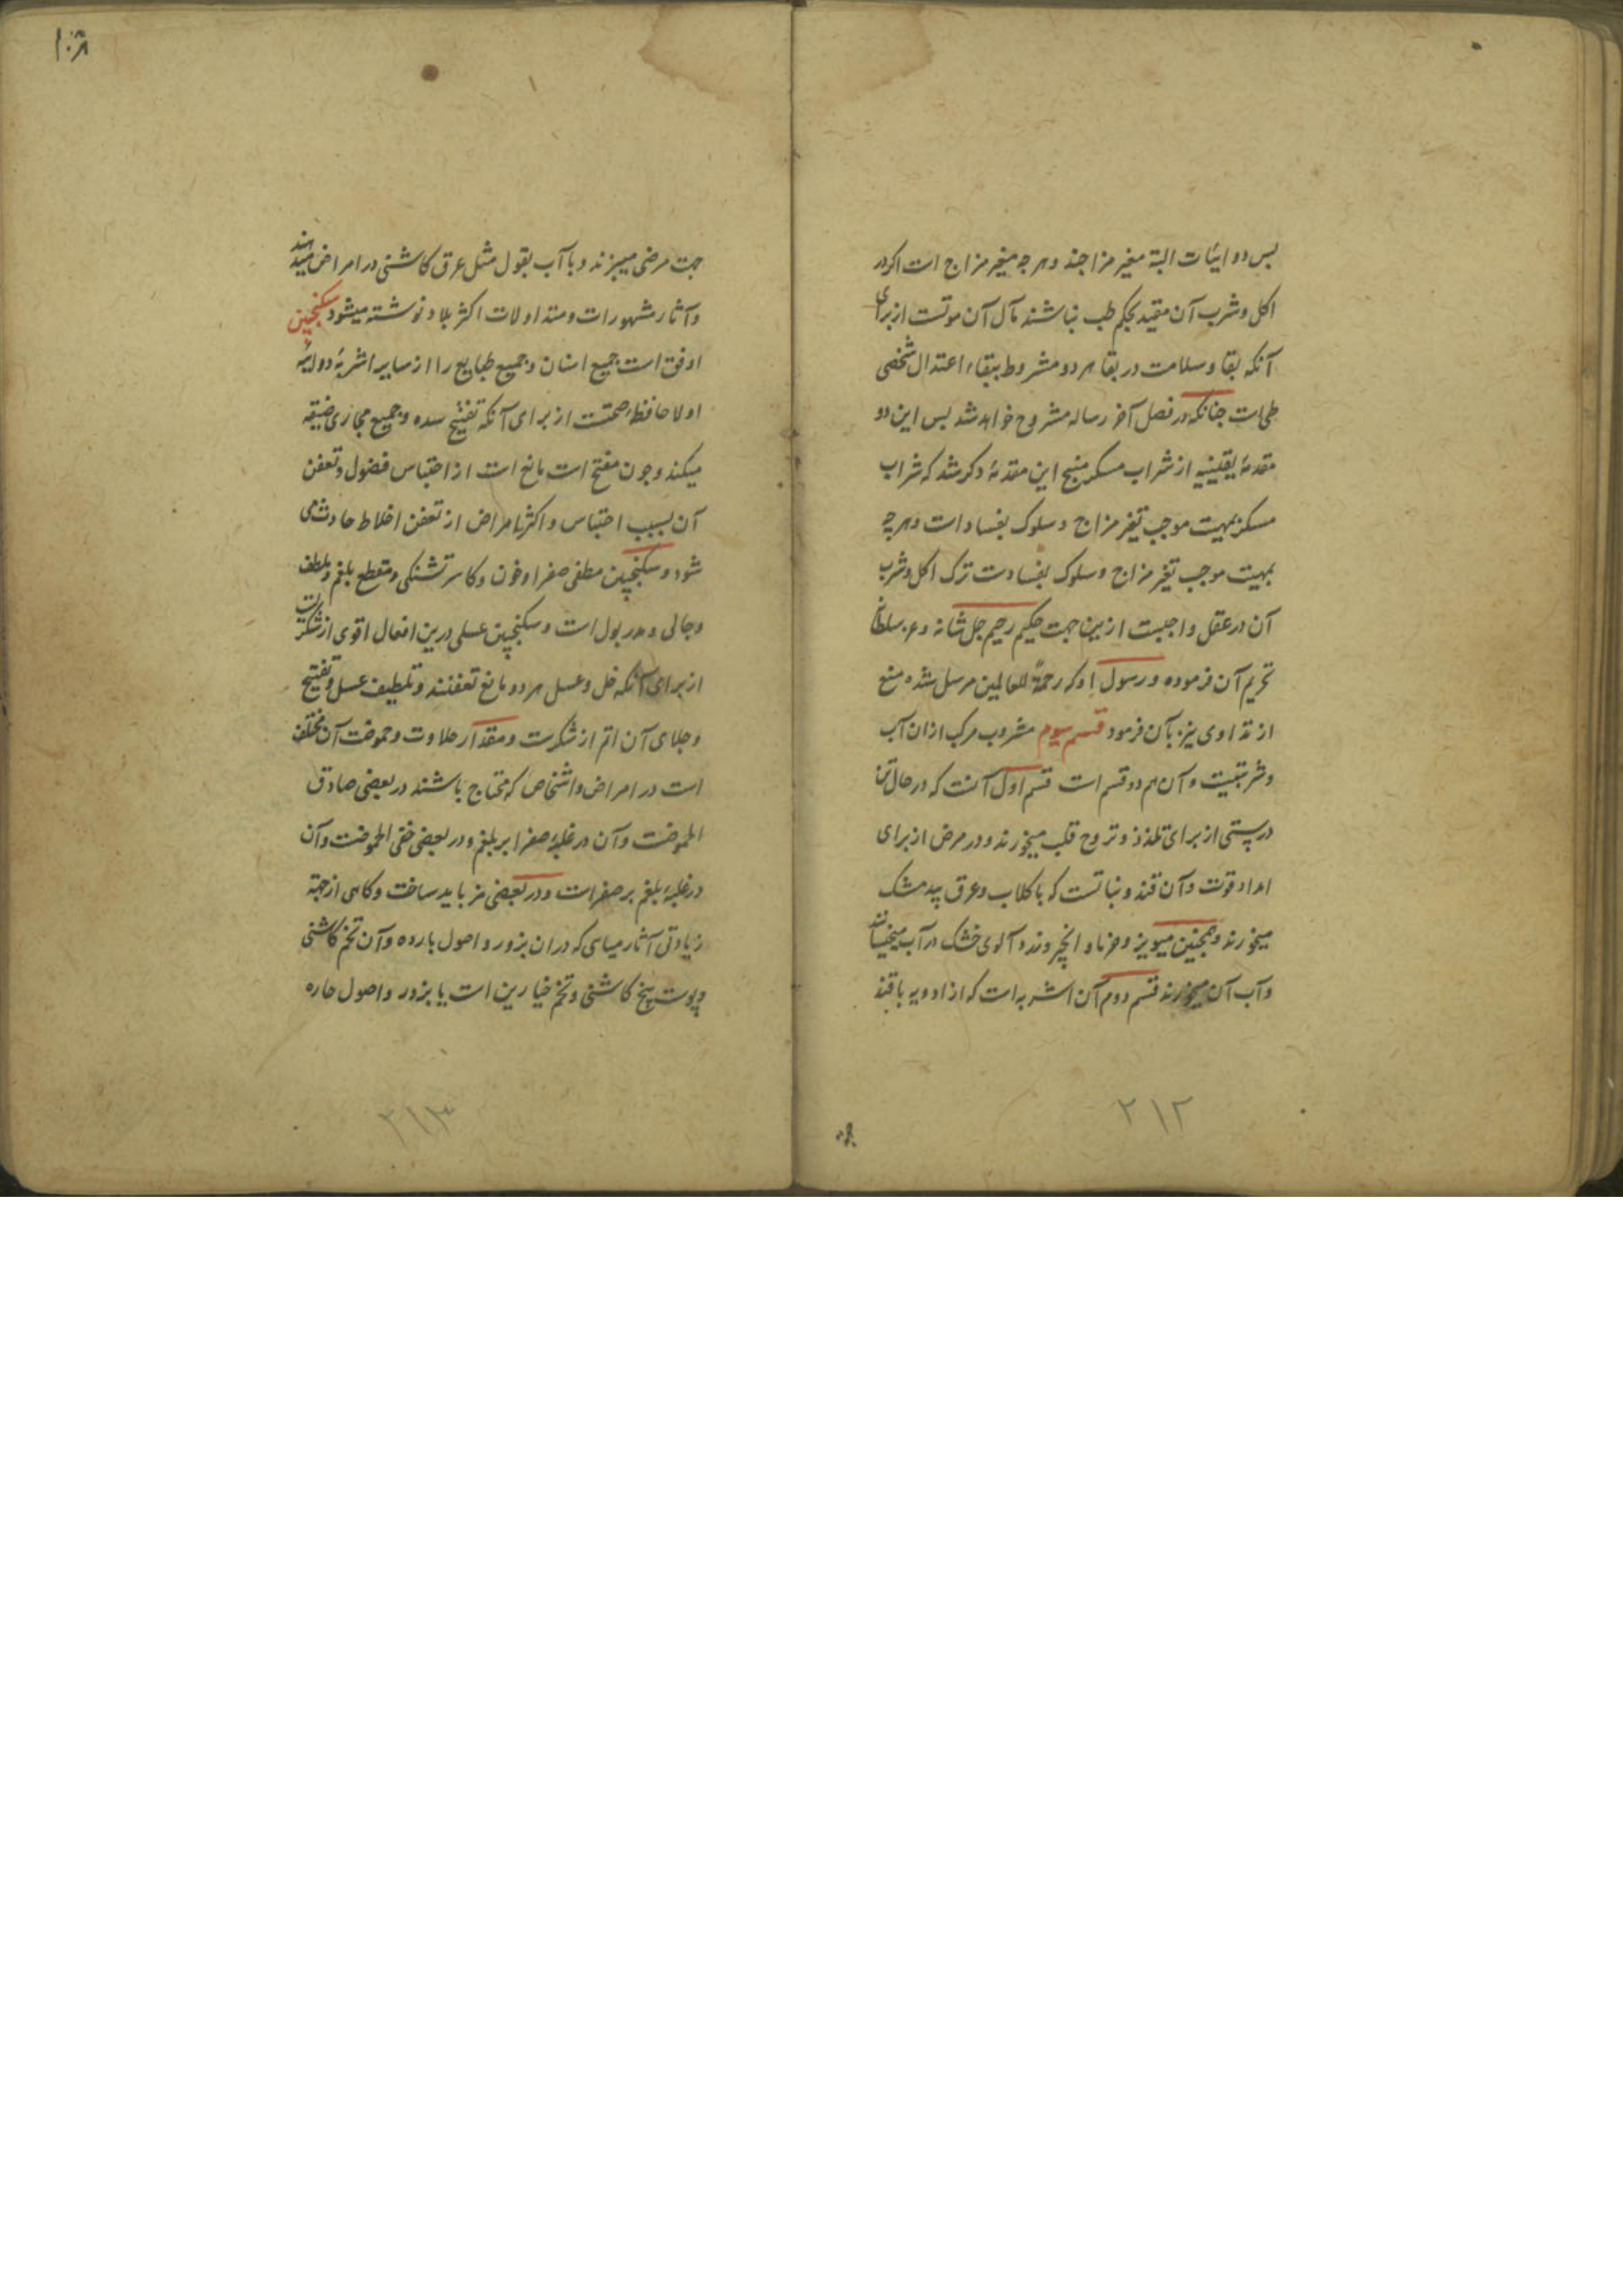 پس دوائیات البته مغیر مزاجند و هر چه مغیر مزاج است اکر در
اکل و شرب آن مقید بحکم طب نباشند مآل آن موتست از برای
آنکه بقا و سلامت در بقا هر دو مشروط ببقاء اعتدال شخصی
طی است چنانکه در فصل آخر رساله مشروح خواهد شد پس این دو
مقدمهٔ یقینیه از شراب مسکر منتج این مقدمهٔ دکر شد که شراب
مسکر بهیت موجب تغیر مزاج و سلوک بفساد است و هر چه
بهیت موجب تغیر مزاج و سلوک بفسادست ترک اکل و شرب
آن در عقل واجبست ازین جهت حکیم رحیم جل شانه و عز سلطانه
تحریم آن فرموده و رسول او که رحمة للعالمین مرسل شده منع
از تداوی نیز بآن فرمود قسم سیوم مشروب مرکب از ان آب
و شربتیست و آن هم دو قسم است قسم اول آنست که در حال تن
درستی از برای تلذذ و تروح قلب میخورند و در مرض از برای
امداد قوت و آن قند و نباتست که با کلاب و عرق بیدمشک
میخورند و همچنین میویز و خرما و انجیر و زرد آلوی خشک در آب میخیسانند
و آب آن میخورند قسم دوم آن اشربه است که از ادویه با قند
۲۱۲
۱۰۸
جهت مرضی میپزند و با آب بقول مثل عرق کاشنی در امراض میدهند
و آثار مشهورات و متداولات اکثر بلاد نوشته میشود سکنجبین
اوفق است جمیع اسنان و جمیع طبایع را از سایر اشربهٔ دوائیه
اولا حافظ صحتست از برای آنکه تفتیح سده و جمیع مجاری ضیقه
میکند و چون مفتح است مانع است از احتباس فضول و تعفن
آن بسبب احتباس و اکثر امراض از تعفن اخلاط حادث می
شود و سکنجبین مطفی صفرا و خون و کاسر تشنکی و مقطع بلغم و ملطف
و جالی و مدر بول است و سکنجبین عسلی درین افعال اقوی از شکریست
از برای آنکه خل و عسل هر دو مانع تعفنند و تلطیف عسل و تفتیح
و جلای آن اتم از شکرست و مقدار حلاوت و حموضت آن مختلف
است در امراض و اشخاص که محتاج باشند در بعضی صادق
الحموضت و آن در غلبهٔ صفرا بر بلغم و در بعضی خفی الحموضت و آن
در غلبهٔ بلغم بر صفراست و در بعضی مز باید ساخت و کاهی از جهة
زیادتی آثار میباید که در ان بزور و اصول بارده و آن تخم کاشنی
و پوست بیخ کاشنی و تخم خیارین است یا بزور و اصول حاره
۲۱۳